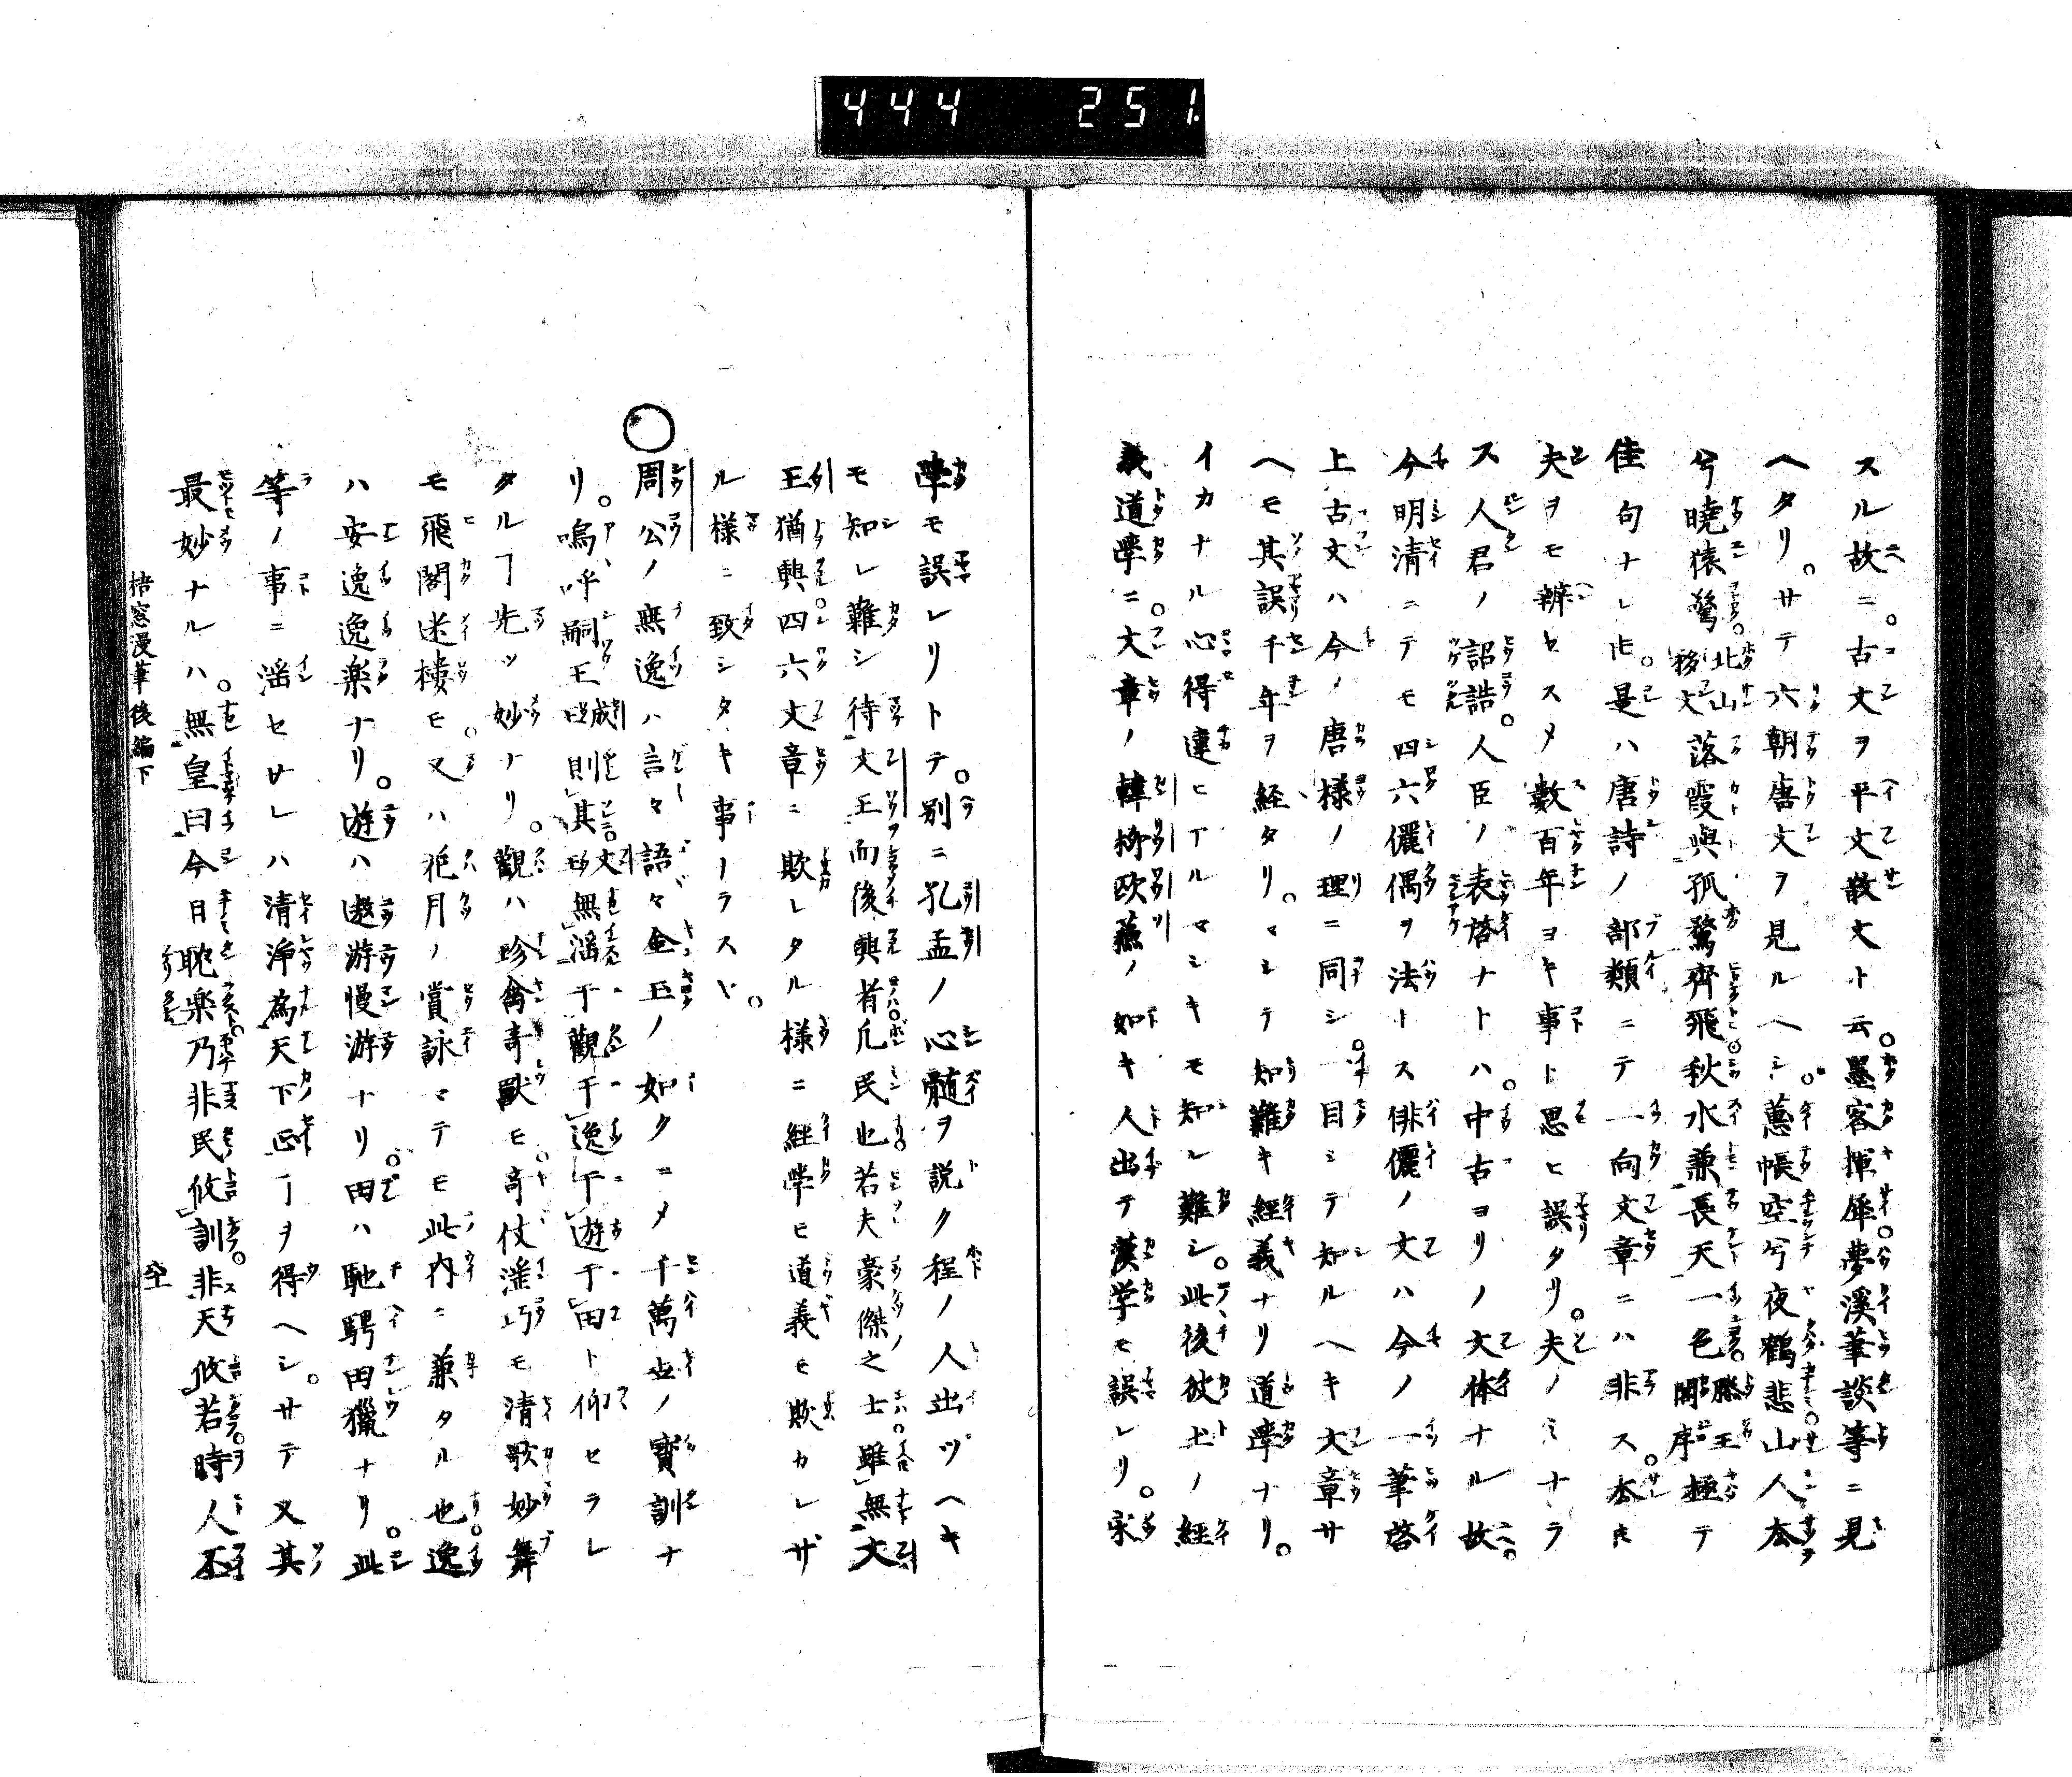 444 251
スル故ニ。古文ヲ平文散文ト云。墨客揮犀。夢溪筆談等ニ見
ヘタリ。サテ六朝唐文ヲ見ルヘシ。蕙帳空兮夜鶴悲山人去
兮曉猿驚。北山移文落霞與孤鶩齊飛秋水兼長天一色。滕王閣序極テ
佳句ナレ𪜈。是ハ唐詩ノ部類ニテ一向文章ニハ非ス。本ト
夫ヲモ辨ヘスメ數百年ヨキ事ト思ヒ誤タリ。夫ノミナラ
ス人君ノ詔誥。人臣ノ表啓ナトハ。中古ヨリノ文体ナル故。
今明清ニテモ四六儷偶ヲ法トス俳儷ノ文ハ今ノ一筆啓
上古文ハ今ノ唐様ノ理ニ同シ。一目ミテ知ルヘキ文章サ
ヘモ其誤千年ヲ経タリ。マシテ知難キ經義ナリ道學ナリ。
イカナル心得違ヒアルマシキモ知レ難シ。此後彼土ノ經
義道學ニ。文章ノ韓柳欧蘇ノ如キ人出テ漢学モ誤レリ。宋
學モ誤レリトテ。別ニ孔孟ノ心髄ヲ説ク程ノ人出ツヘキ
モ知レ難シ待文王而後興者凡民也若夫豪傑之士雖無文
王猶興四六文章ニ欺レタル様ニ經學ヒ道義モ欺カレザ
ル様ニ致シタキ事ーラスヤ。
○周公ノ無逸ハ言々語々金玉ノ如クニメ千萬世ノ寳訓ナ
リ。嗚呼嗣王成王則其文王無淫于觀于逸于遊于田ト仰セラレ
タルヿ先ッ妙ナリ。觀ハ珍禽奇獸モ。奇伎淫巧モ清歌妙舞
モ飛閣迷樓モ。又ハ花月ノ賞詠マテモ此内ニ兼タル也。逸
ハ安逸逸楽ナリ。遊ハ遨游慢游ナリ田ハ馳騁田獵ナリ。此
等ノ事ニ淫セサレハ清淨為天下正ヿヲ得ヘシ。サテ又其
最妙ナルハ。無皇曰今日耽楽乃非民攸訓。非天攸若。時人丕
梧窓漫筆後編下